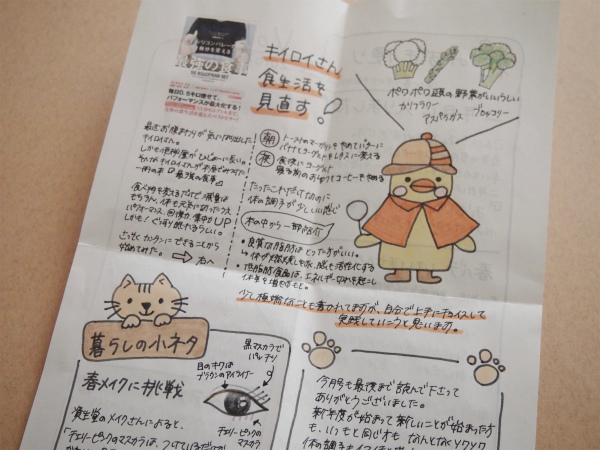 シリコンバレー式
自分を変える
最強の食事
THE BULLETPROOF DIET
毎日0.5キロ痩せて、
パフォーマンスが最大化する!
キイロイさん
食生活を
見直す!
ポロポロ豆類の野菜がいいらしい
カリフラワー
アスパラガス
ブロッコリー
最近お腹まわりが気になり出した
キイロイさん。
しかも
一冊の本『最強の食事』
食べ物を変えるだけで減量は
もちろん、体も元気に
パフォーマンス、回復力、集中力UP
しかも!ぐっすり眠れるらしい。
さっそくカンタンにできることから
始めてみた。
→右へ
朝 トーストのマーガリンをやめてバターに
バナナとヨーグルトをレタスに変える
夜 食後にヨーグルト
寝る前のおやつとコーヒーをやめる
たったこれだけなのに
体の調子が少しいい感じ
本の中から一部紹介
・良質な脂肪はとった方がいい。
↳体が燃焼しやすく、脳も活性化する
・低脂肪食品は、エネルギー切れを起こし
体重を増やすもと。
少し極端なことも書かれてますが、自分で上手にチョイスして
実践していこうと思います。
暮らしの小ネタ
春メイクに挑戦
資生堂のメイクさんによると、
「チェリーピンクのマスカラは、つけているだけ
黒マスカラで
パッチリ
目のキワは
ブラウンのアイライナー
チェリーピンクの
マスカラ
今月号も最後まで読んで下さって
ありがとうございました。
新年度が始まって新しいことが始まった方
も、いつもと同じ方も なんとなくワクワク